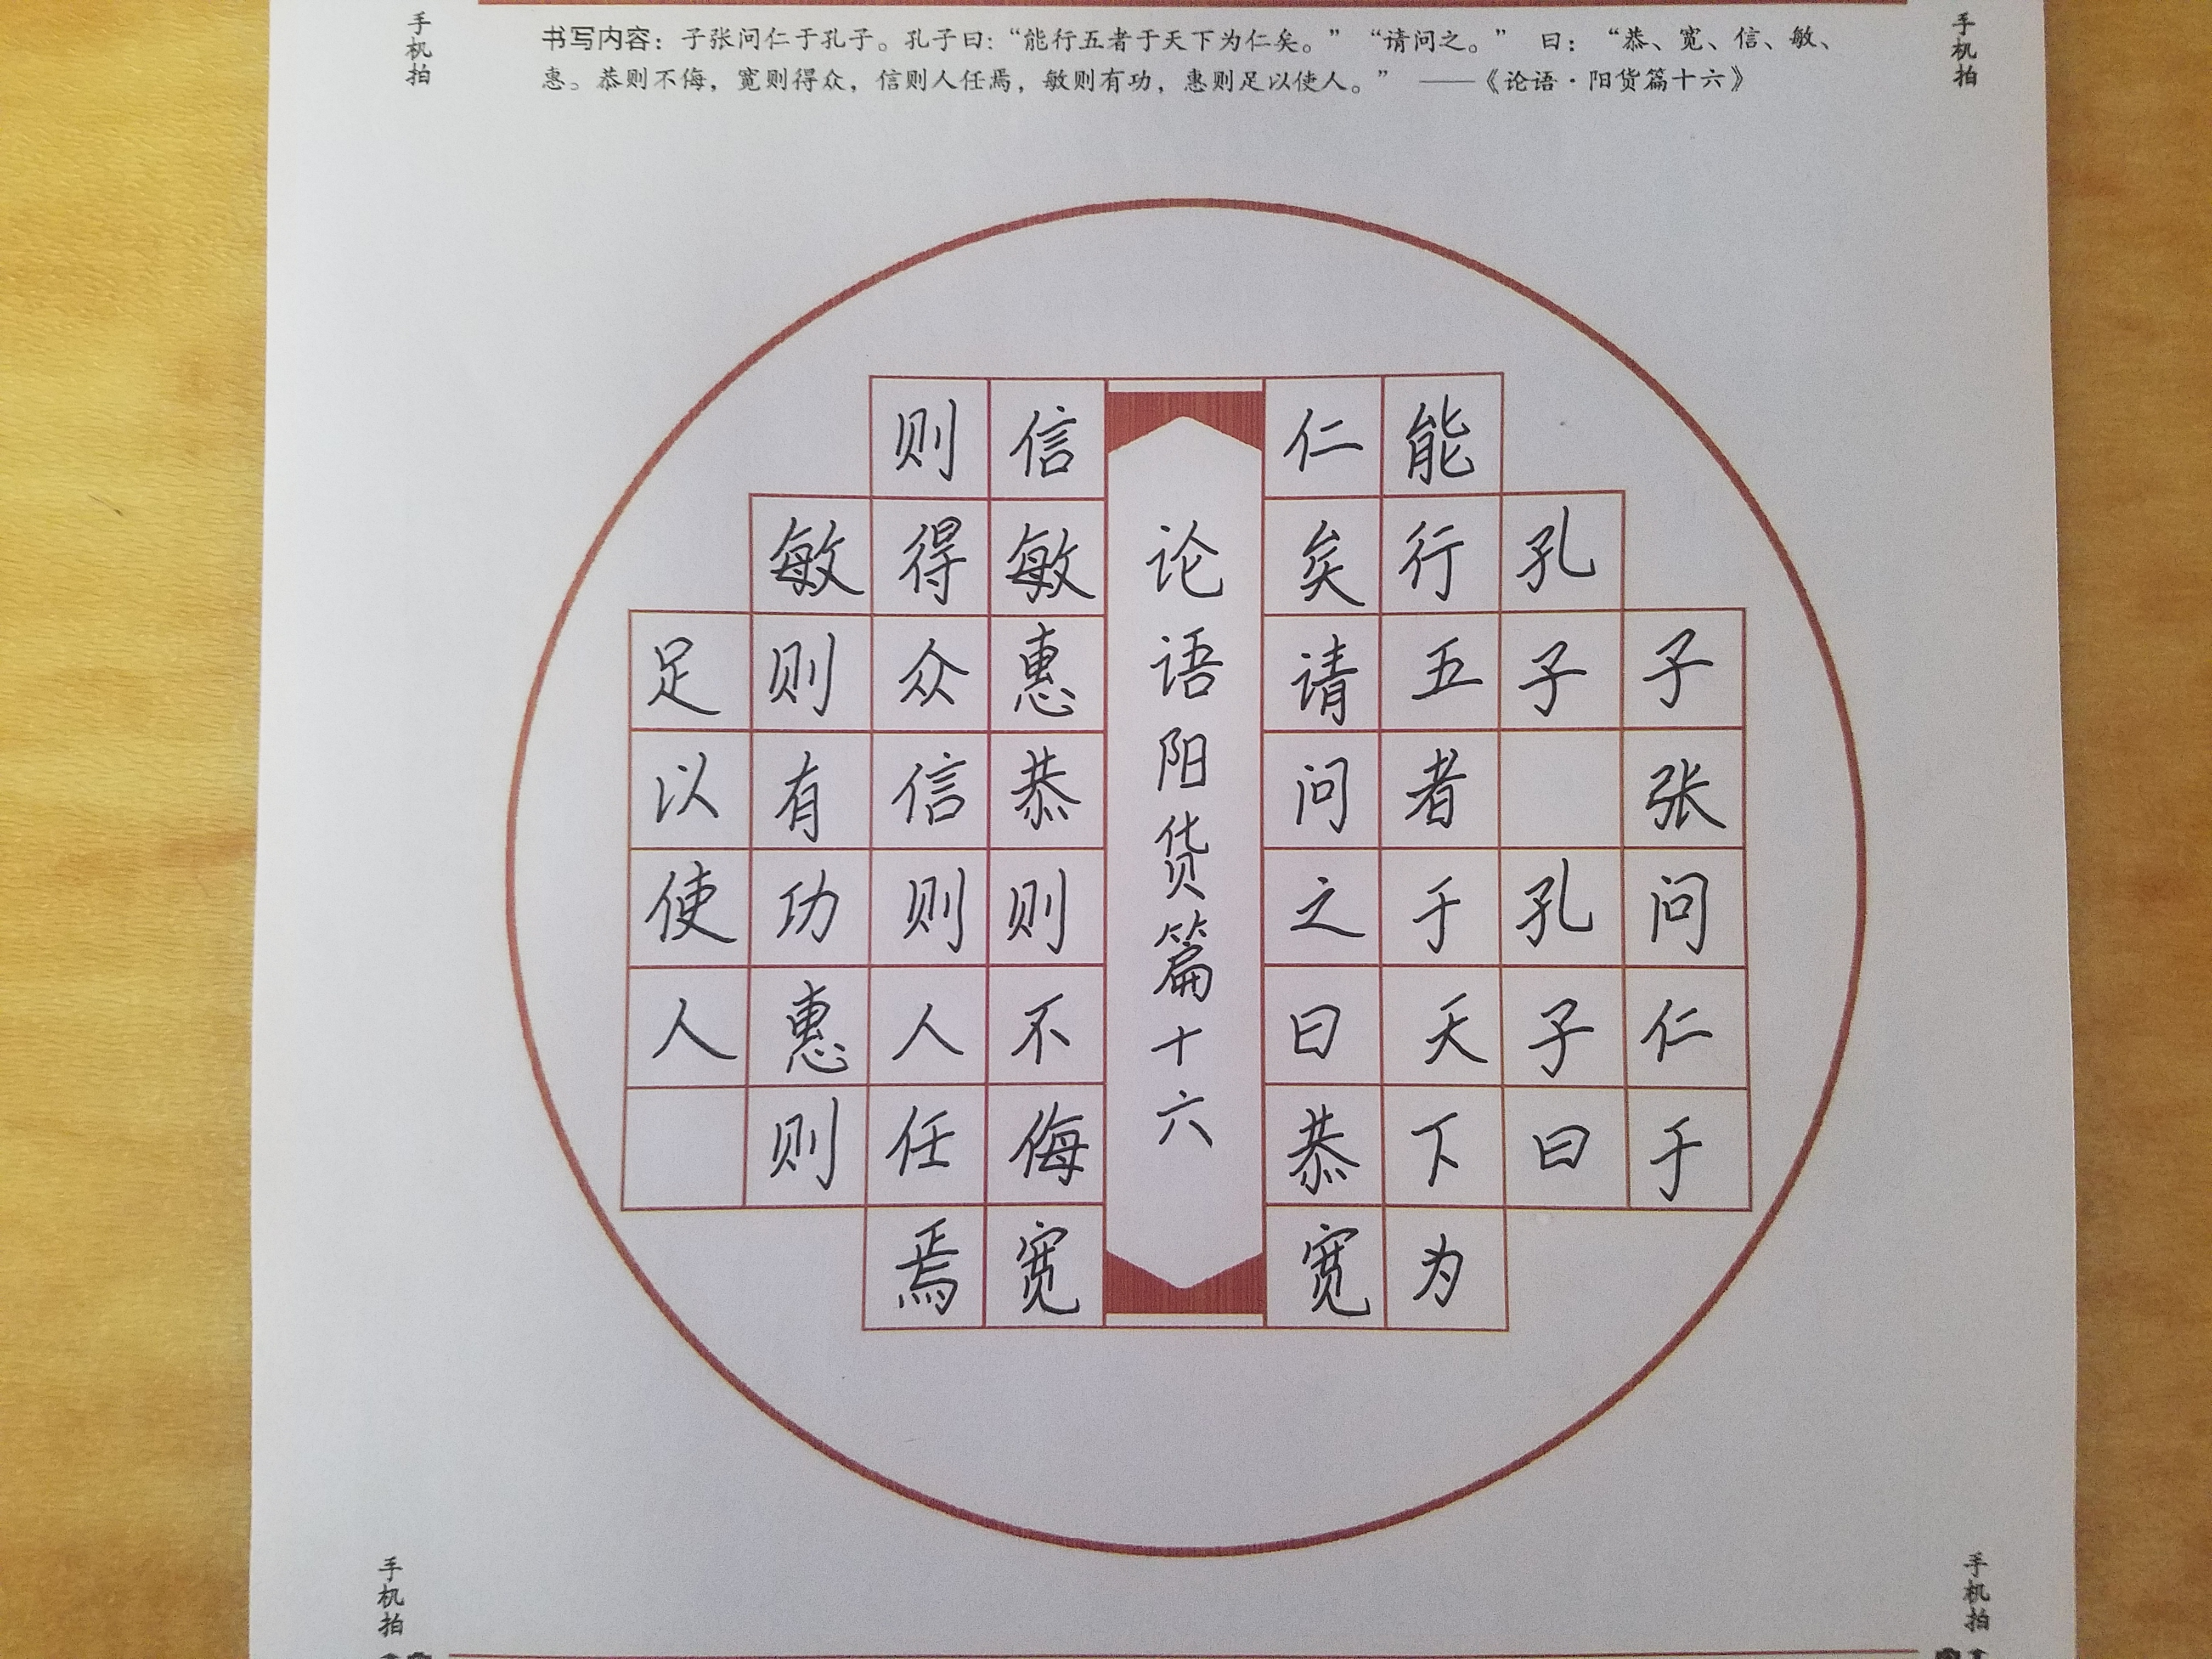 手机拍
手机拍
书写内容：子张问仁于孔子。孔子曰：“能行五者于天下为仁矣。”“请问之。” 曰：“恭、宽、信、敏、
惠。恭则不侮，宽则得众，信则人任焉，敏则有功，惠则足以使人。” ——《论语·阳货篇十六》
子张问仁于
孔子 孔子曰
能行五者于天下为
仁矣请问之曰恭宽
论语阳货篇十六
信敏惠恭则不侮宽
则得众信则人任焉
敏则有功惠则
足以使人
手机拍
手机拍